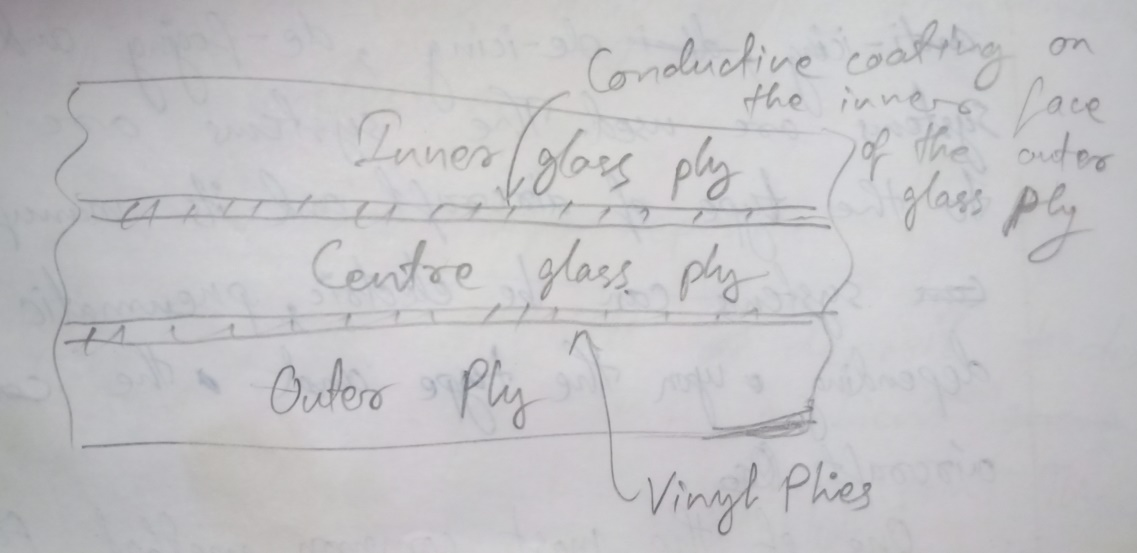 Conductive coating on
the inner face
of the outer
glass ply
Inner glass ply
Centre glass ply
Outer Ply
Vinyl Plies